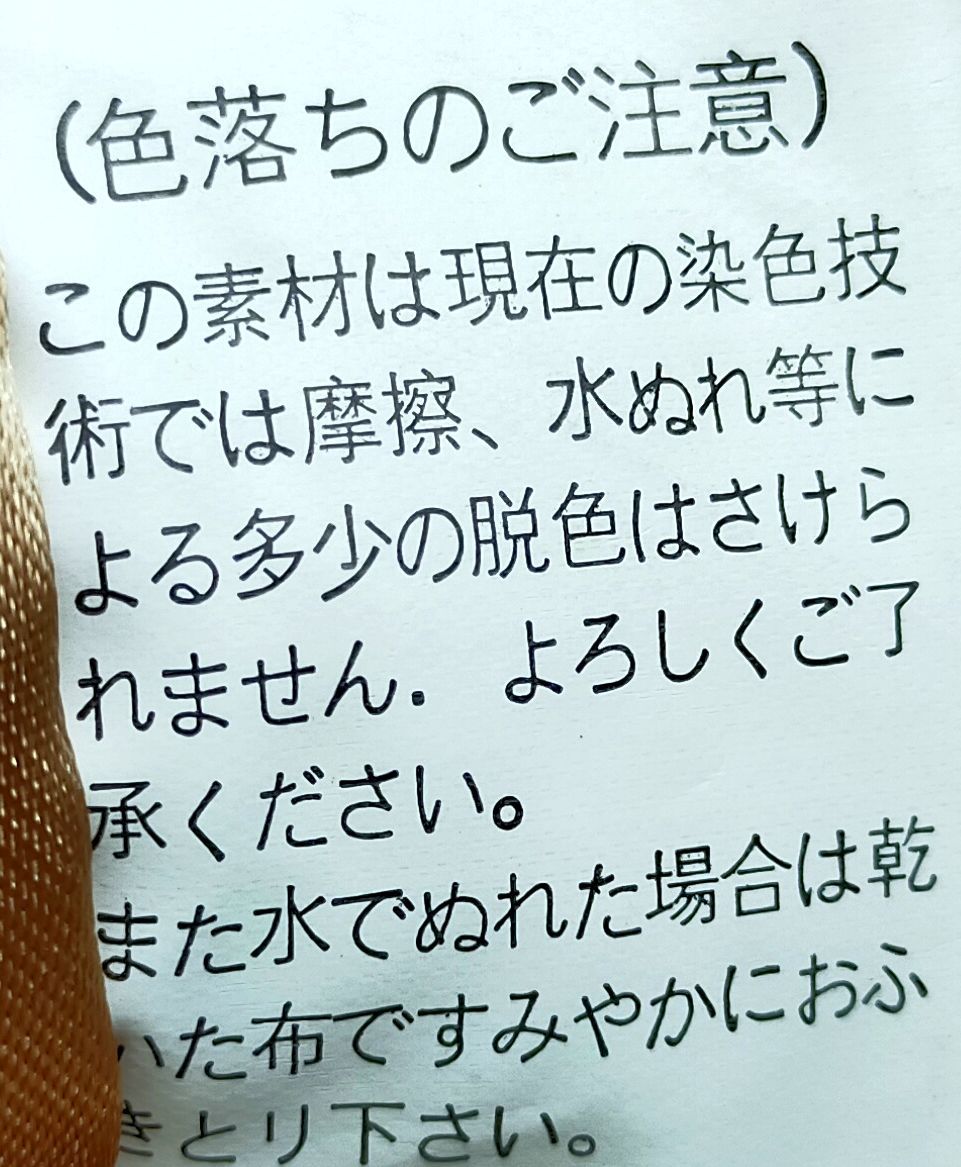 (色落ちのご注意)
この素材は現在の染色技
術では摩擦、水ぬれ等に
よる多少の脱色はさけら
れません. よろしくご了
承ください。
また水でぬれた場合は乾
いた布ですみやかにおふ
きとり下さい。